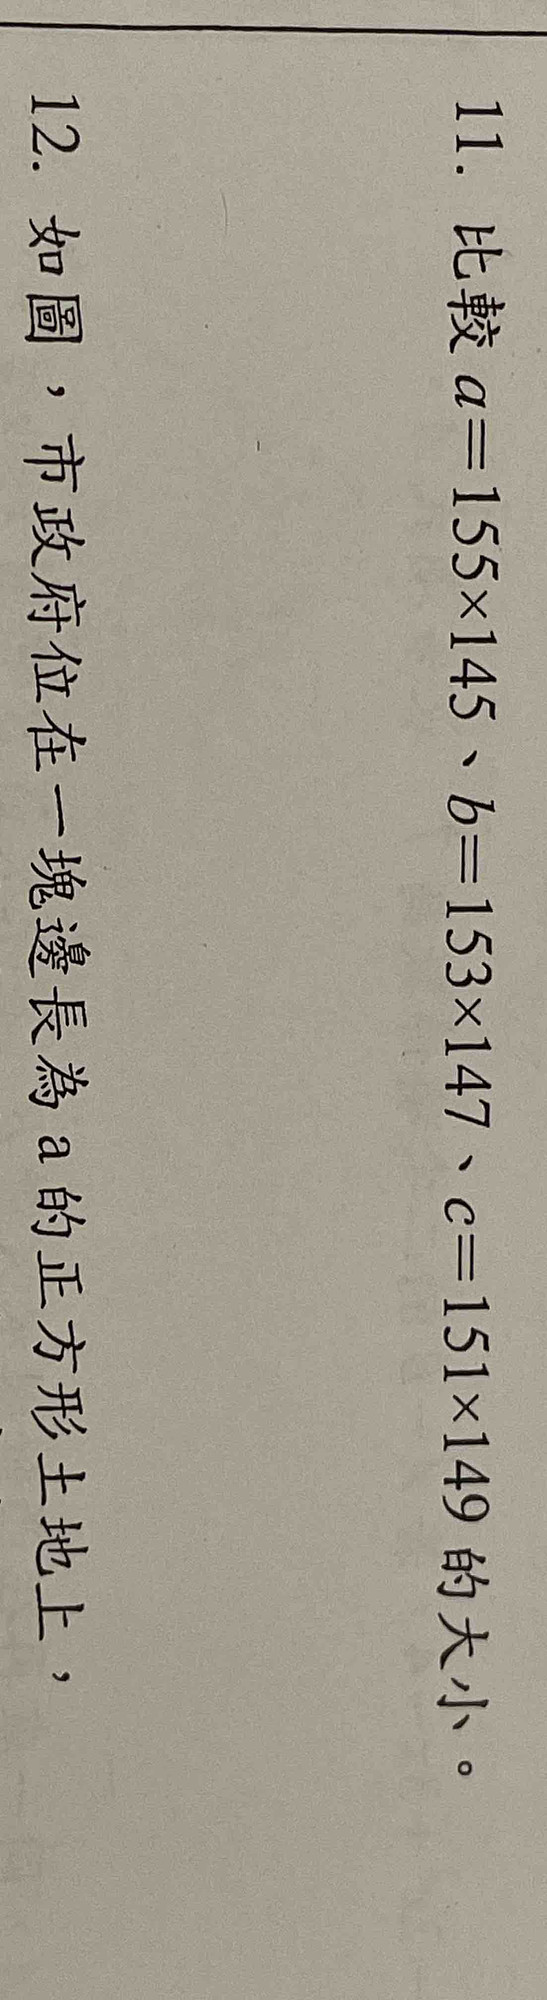 11. 比較 a=155×145、b=153×147、c=151×149 的大小。
12. 如圖，市政府位在一塊邊長為 a 的正方形土地上，